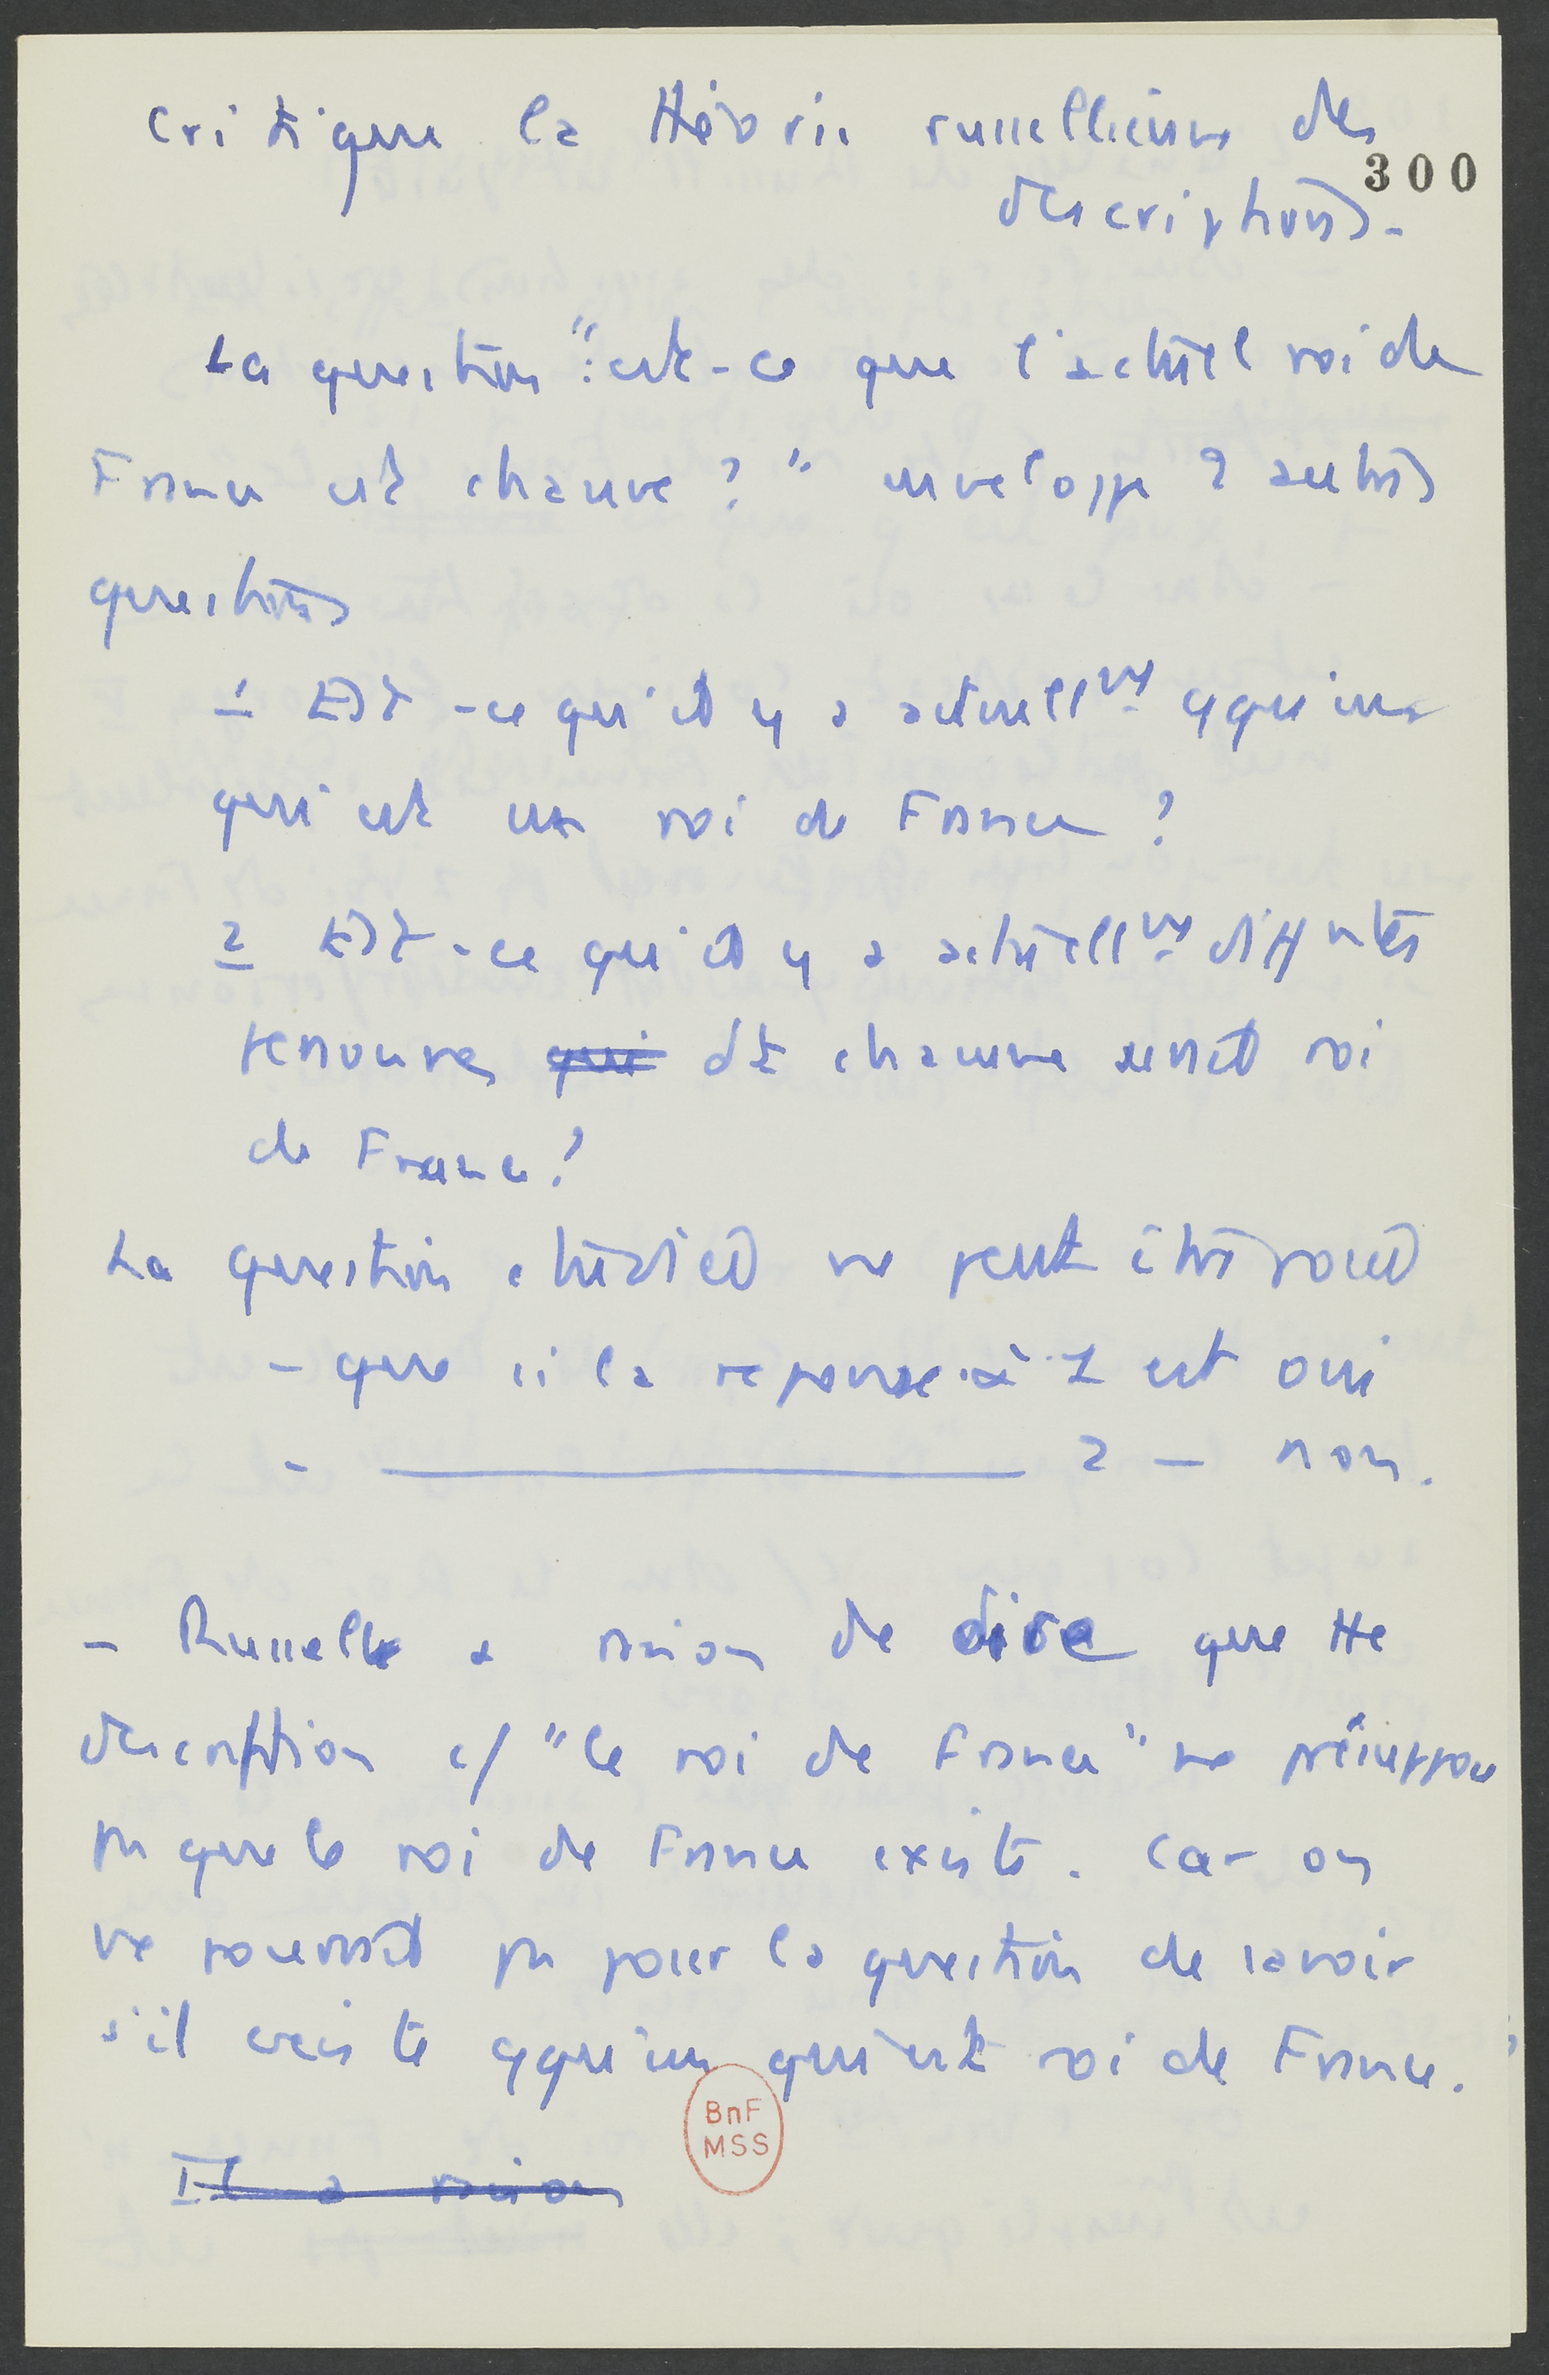 critique la théorie russellienne des
300
descriptions.
La question : "est-ce que l'actuel roi de
France est chauve ?" enveloppe 2 autres
questions
1 Est-ce qu'il y a actuellmt qqu'un
qui est un roi de France ?
2 Est-ce qu'il y a actuellmt diffntes
personnes qui dt chacune serait roi
de France ?
La question étudiée ne peut être posée
- que si la reponse à 1 est oui
- ———— 2 — non.
- Russell a raison de dire que tte
description c/ "le roi de France" ne présuppose
pas que le roi de France existe. Car on
ne pourrait pas poser la question de savoir
s'il existe qqu'un qui est roi de France.
BnF
MSS
Il a raison